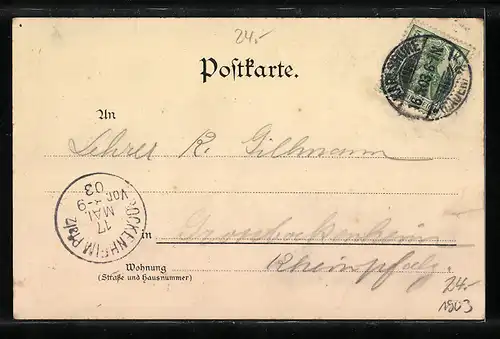 24.-
Postkarte.
An
Lehrer K. Gillmann
in Grossbockenheim
Wohnung
(Straße und Hausnummer)
Rheinpfalz.
BOCKENHEIM Pfalz
17
MAI.
Vor. 8-9
03
24.-
1903